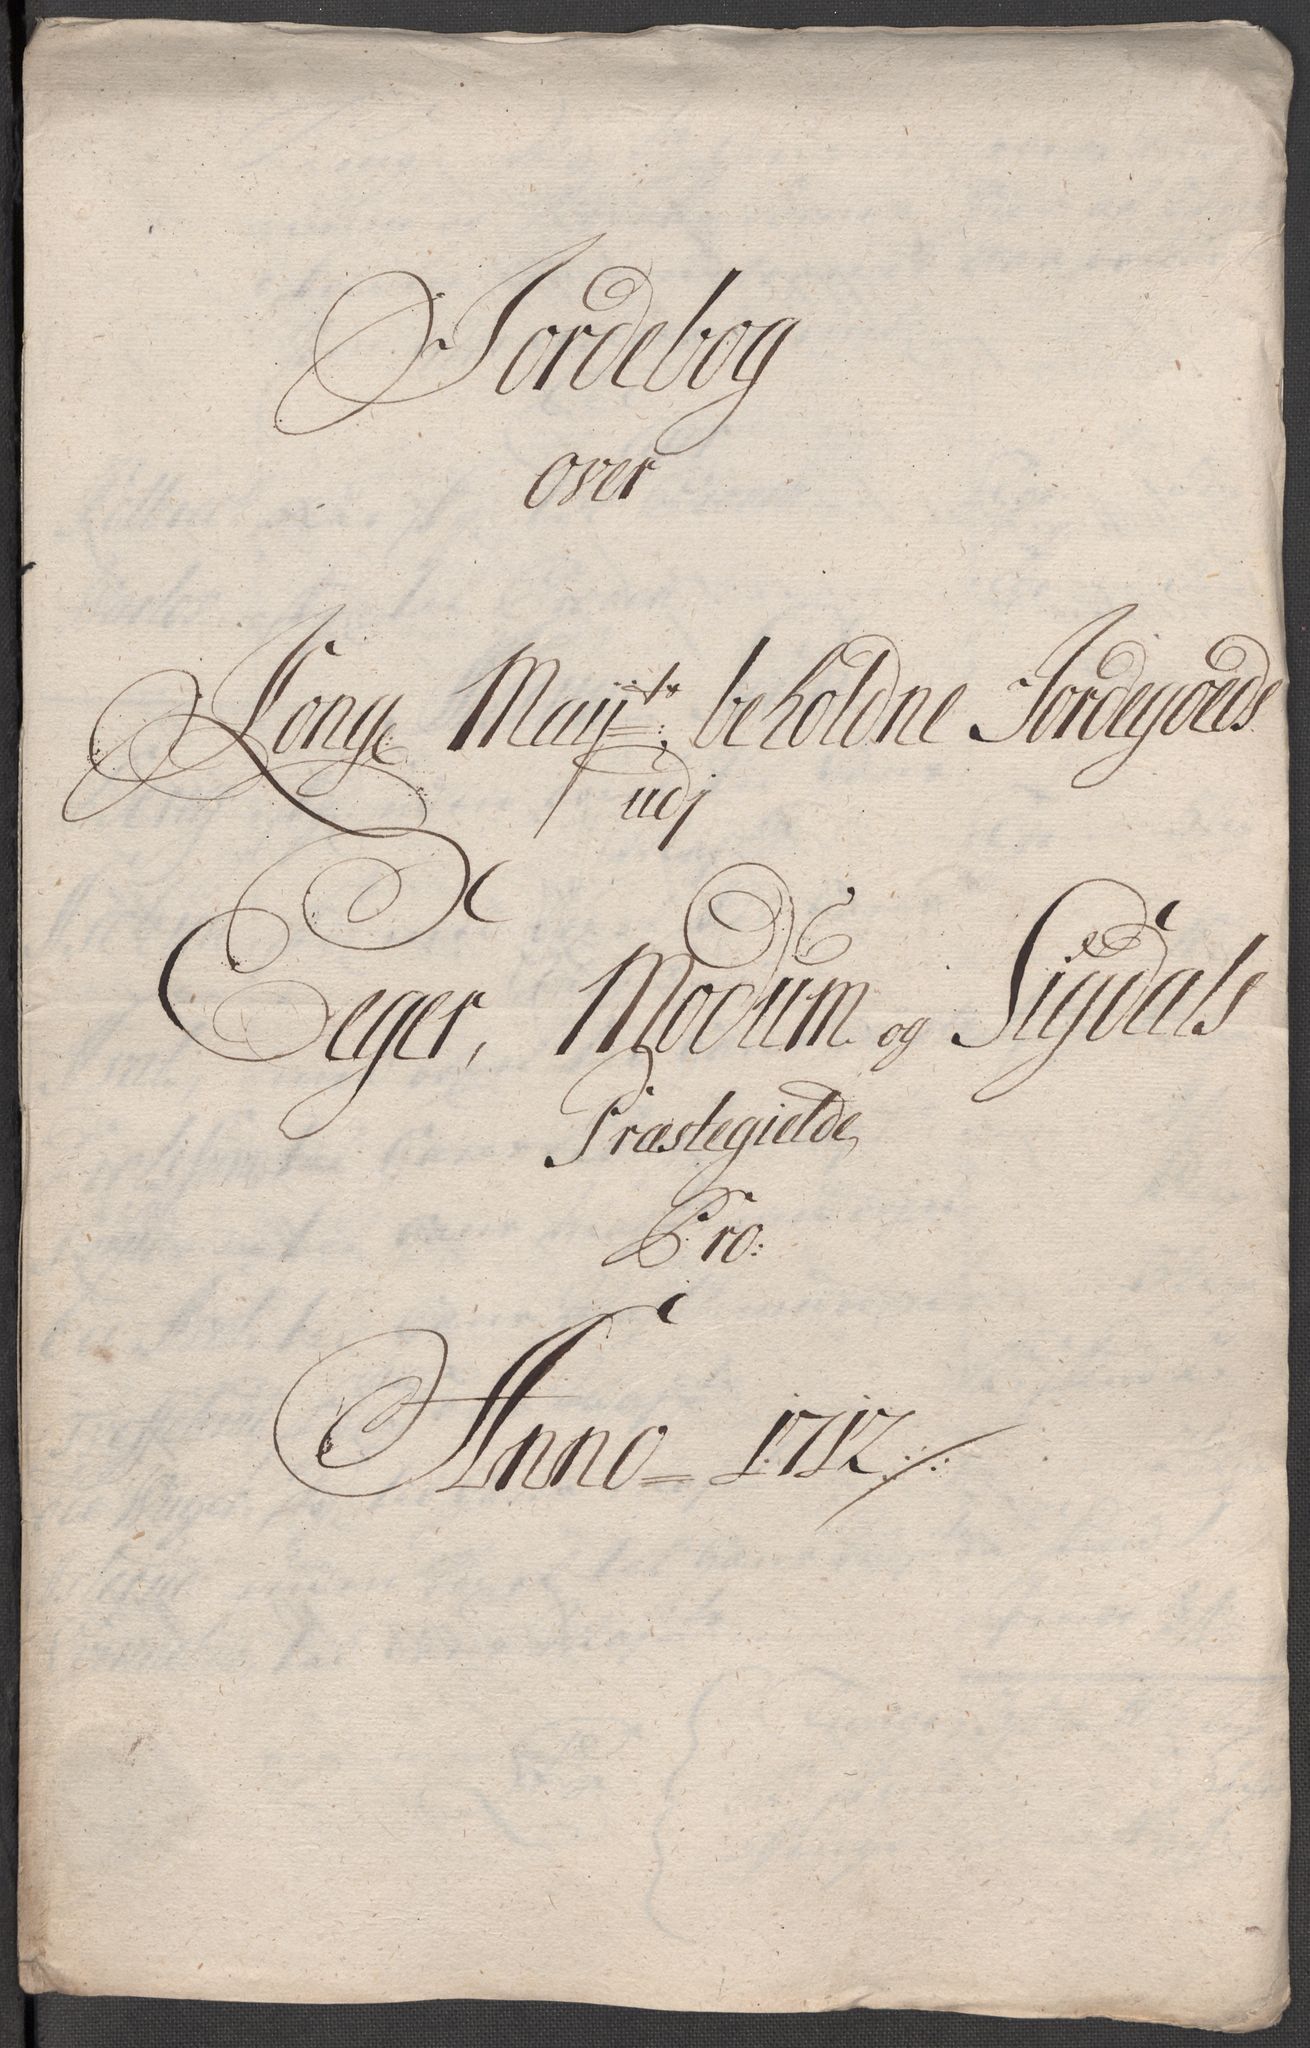 Jordebog
over
Kong: Maij:ts beholdne Jordegoeds
udj
Eeger, Modum og Sigdals
Præstegielde,
Pro:
Anno = 1712